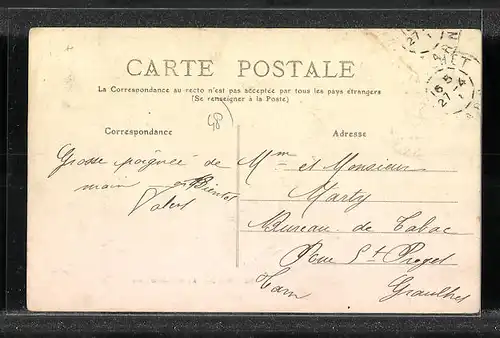 CARTE POSTALE
La Correspondance au recto n'est pas acceptée par tous les pays étrangers
(Se renseigner à la Poste)
48
Correspondance
Grosse poignée de
main et Bientot
Adresse
Mme et Monsieur
Marty
Bureau de Tabac
Rue St Projet
Tarn Graulhet
16 5
27 -4